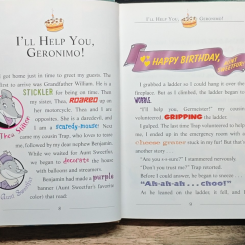 I'LL HELP YOU,
GERONIMO!
I got home just in time to greet my guests. The
first to arrive was Grandfather William. He is a
STICKLER for being on time. That
my sister, Thea, ROARED up on
her motorcycle. Thea and I are
opposites. She is a daredevil, and
I am a scaredy-mouse! Next
came my cousin Trap, who love to tease
me, followed by my dear nephew Benjamin.
While we waited for Aunt Sweetfur,
we began to decorate the home
with balloons and streamers.
Benjamin had made a purple
banner (Aunt Sweetfur's favorite
color) that read:
Thea Stilton
Aunt Sweetfur
8
I'LL HELP YOU, GERONIMO!
HAPPY BIRTHDAY,
AUNT SWEETFUR!
I grabbed a ladder so I could hang it over the
fireplace. But as I climbed, the ladder began to
WOBBLE.
"I'll help you, Germeister!" my cousin
volunteered, GRIPPING the ladder.
I gulped. The last time Trap volunteered to help
me, I ended up in the emergency room with a
cheese grater stuck to my fur! But that's
another story . . .
"Are you s-s-sure?" I stammered nervously.
"Don't you trust me?" Trap snorted.
Before I could answer, he began to sneeze.
"Ah-ah-ah . . . choo!"
As he leaned on the ladder, it fell, and I
9